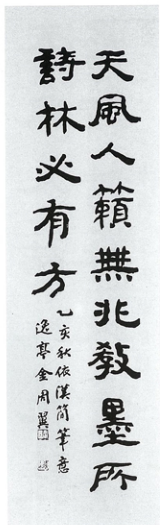 天風人籟無非敎墨所
詩林必有方
乙亥秋依漢簡筆意
逸亭金周翼